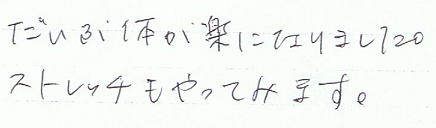 だいぶ体が楽になりました。
ストレッチもやってみます。